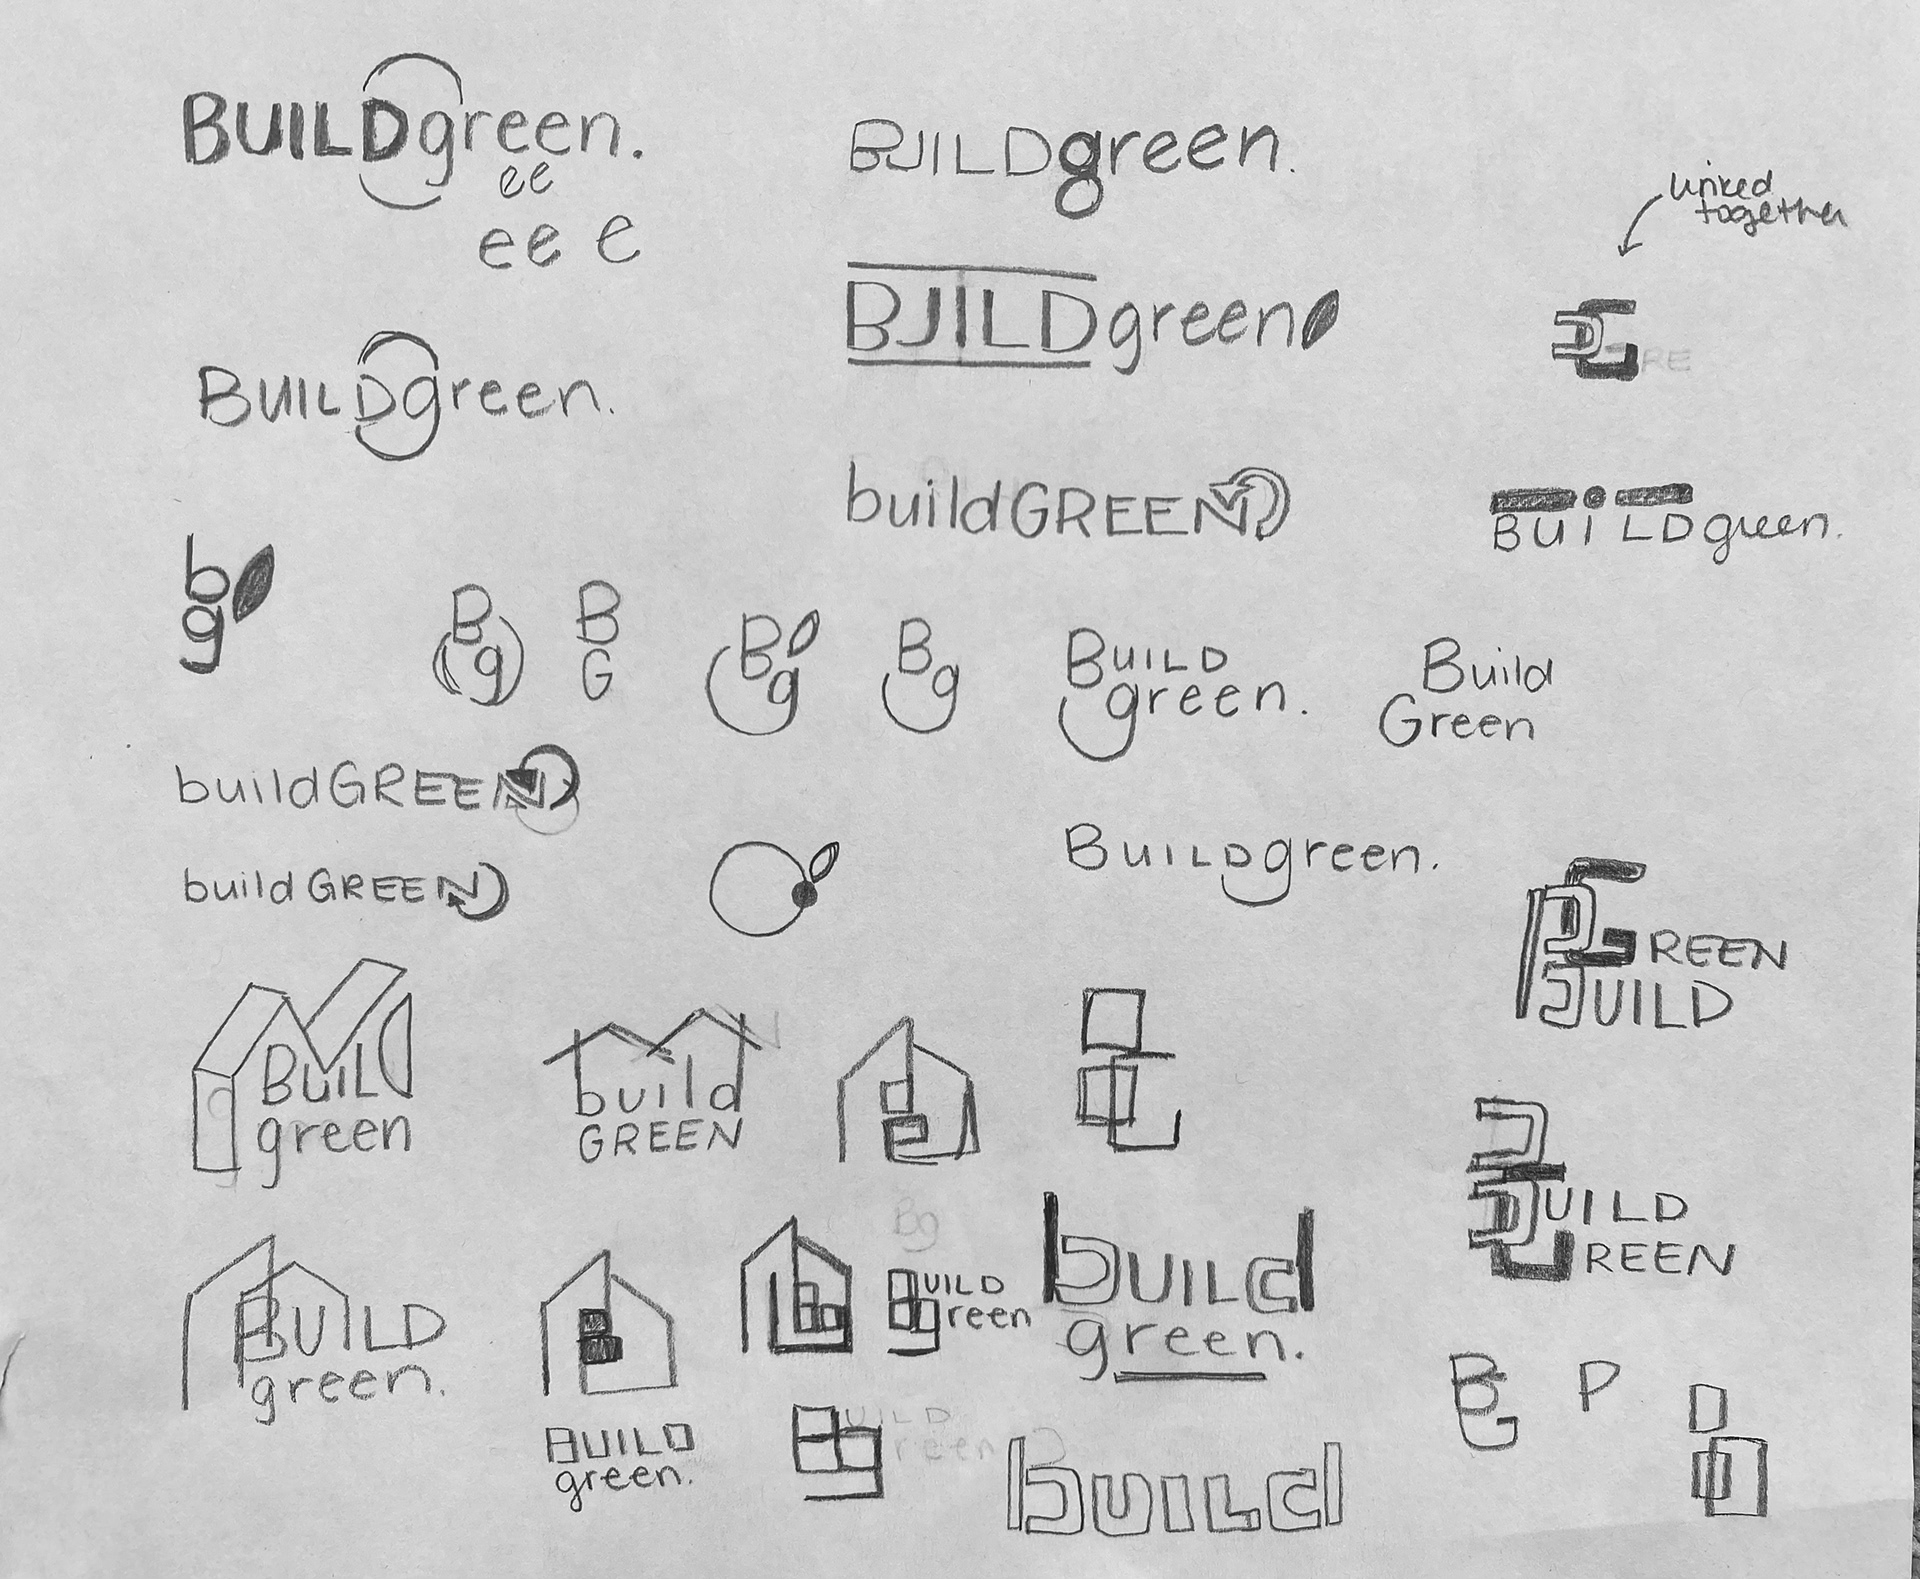 BUILDgreen.
ee
ee e
BUILDgreen.
linked
together
BUILDgreen
G RE
BUILDgreen.
buildGREEN
BUiLDgreen.
b
g
B
g
B
G
B
g
B
g
BUILD
green.
Build
Green
buildGREEN
buildGREEN
BUILDgreen.
GREEN
BUILD
BUILD
green
build
GREEN
BUILD
GREEN
Bg
BUILD
green.
BUILD
green
build
green.
BUILD
green.
Bg UILD
reen
build
B
G
P